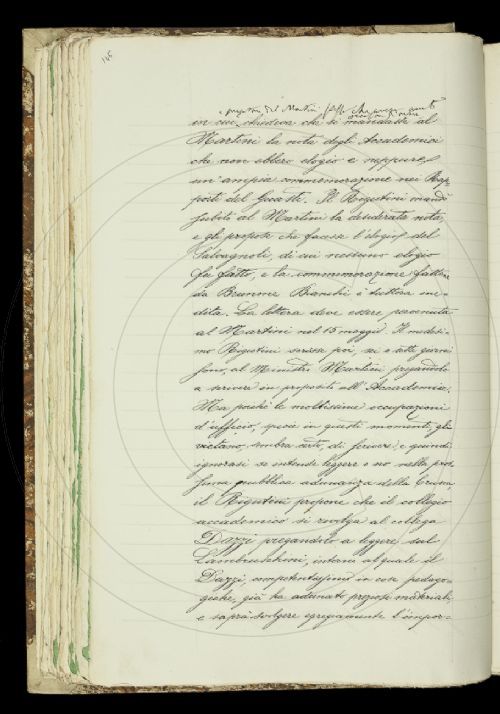 146
in cui chiedeva che si mandasse al
Martini la nota degli Accademici
che non ebbero elogio e neppure
un'ampia commemorazione nei Rap-
porti del Guasti. Il Rigutini mandò
subito al Martini la desiderata nota,
e gli propose che facesse l'elogio del
Salvagnoli, di cui nessuno elogio
fu fatto, e la commemorazione fattane
da Brunone Bianchi è tuttora ine-
dita. La lettera deve essere pervenuta
al Martini nel 15 maggio. Il medesi-
mo Rigutini scrisse poi, sei o sette giorni
sono, al Ministro Martini pregandolo
a scrivere in proposito all'Accademia.
Ma poiché le moltissime occupazioni
d'ufficio, specie in questi momenti, gli
vietano, sembra certo, di scrivere, e quindi
ignorasi se intende leggere o no nella pros-
sima pubblica adunanza della Crusca
il Rigutini propone che il collegio
accademico si rivolga al collega
Dazzi pregandolo a leggere sul
Lambruschini, intorno al quale il
Dazzi, competentissimo in cose pedago-
giche, già ha adunato preziosi materiali
e saprà svolgere egregiamente l'impor-